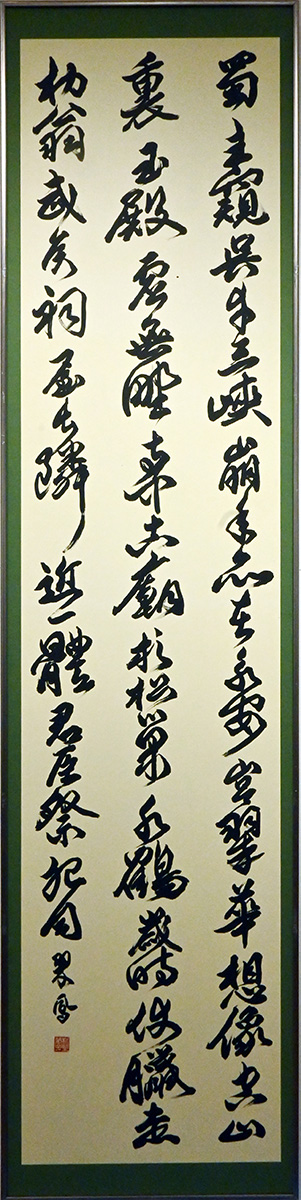 蜀主窺吳幸三峽崩年亦在永安宮翠華想像空山
裏玉殿虛無野寺中古廟杉松巢水鶴歲時伏臘走
村翁武侯祠屋長隣近一體君臣祭祀同